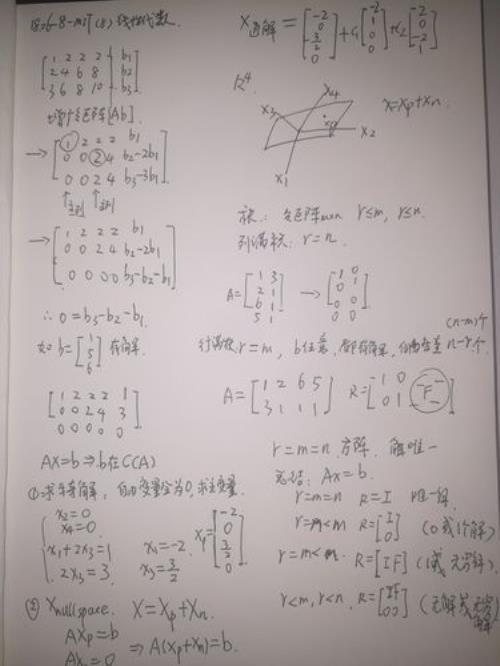 线性代数
[1 2 2 2 b1
2 4 6 8 b2
3 6 8 10 b3]
增广矩阵[Ab]
→ [1 2 2 2 b1
0 0 2 4 b2-2b1
0 0 2 4 b3-3b1]
↑主列 ↑主列
→ [1 2 2 2 b1
0 0 2 4 b2-2b1
0 0 0 0 b3-b2-b1]
∴ 0=b3-b2-b1.
如 b=[1 5 6] 有解.
[1 2 2 2 1
0 0 2 4 3
0 0 0 0 0]
AX=b ⇒ b在C(A)
①求特解: 自由变量全为0,求主变量.
{x2=0
x4=0
x1+2x3=1
2x3=3.
x1=-2.
x3=3/2
xp=[-2 0 3/2 0]
② Xnullspace. X=Xp+Xn.
AXp=b
AXn=0
⇒ A(Xp+Xn)=b.
X通解=[-2 0 3/2 0]+c1[-2 1 0 0]+c2[2 0 -2 1]
R⁴
x4
x3
xp
x2
x1
x=xp+xn.
秩: 矩阵mxn r≤m, r≤n.
列满秩: r=n.
A=[1 3
2 1
6 1
5 1] → [1 0
0 1
0 0
0 0]
(n-m)个
行满秩: r=m, b任意, 都有解, 自由变量 n-r个.
A=[1 2 6 5
3 1 1 1] R=[1 0
0 1 F]
r=m=n 方阵 解唯一
总结: Ax=b.
r=m=n R=I 唯一解.
r=n<m R=[I 0] (0或1个解)
r=m<n. R=[IF] (1或无穷解)
r<m, r<n. R=[IF 00] (无解或无穷解)